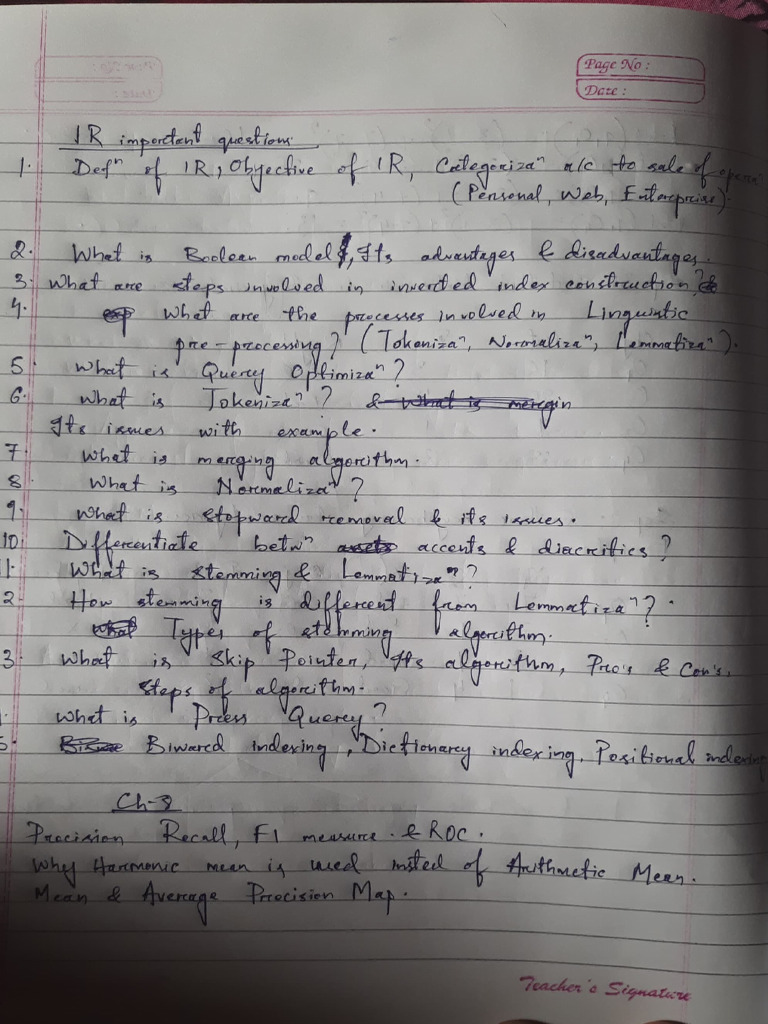 Page No :
Date :
IR important questions
1. Defⁿ of IR, Objective of IR, Categorizaⁿ a/c to sale of
(Personal, Web, Enterprise).
2. What is Boolean model, Its advantages & disadvantages.
3. What are steps involved in inverted index construction?
4. What are the processes involved in Linguistic
pre-processing? (Tokenizaⁿ, Normalizaⁿ, Lemmatizaⁿ).
5. What is Query Optimizaⁿ?
6. What is Tokenizaⁿ?
Its issues with example.
7. What is merging algorithm.
8. What is Normalizaⁿ?
9. What is stopward removal & its issues.
10. Differentiate betwⁿ accents & diacritics?
1. What is stemming & Lemmatizaⁿ?
2. How stemming is different from Lemmatizaⁿ?
Types of stemming algorithm.
3. What is Skip Pointer, Its algorithm, Pro's & Con's,
steps of algorithm.
What is Query?
5. Biward indexing, Dictionary indexing, Positional indexing
Ch-8
Precision Recall, F1 measure. & ROC.
Why Harmonic mean is used insted of Arithmetic Mean.
Mean & Average Precision Map.
Teacher's Signature